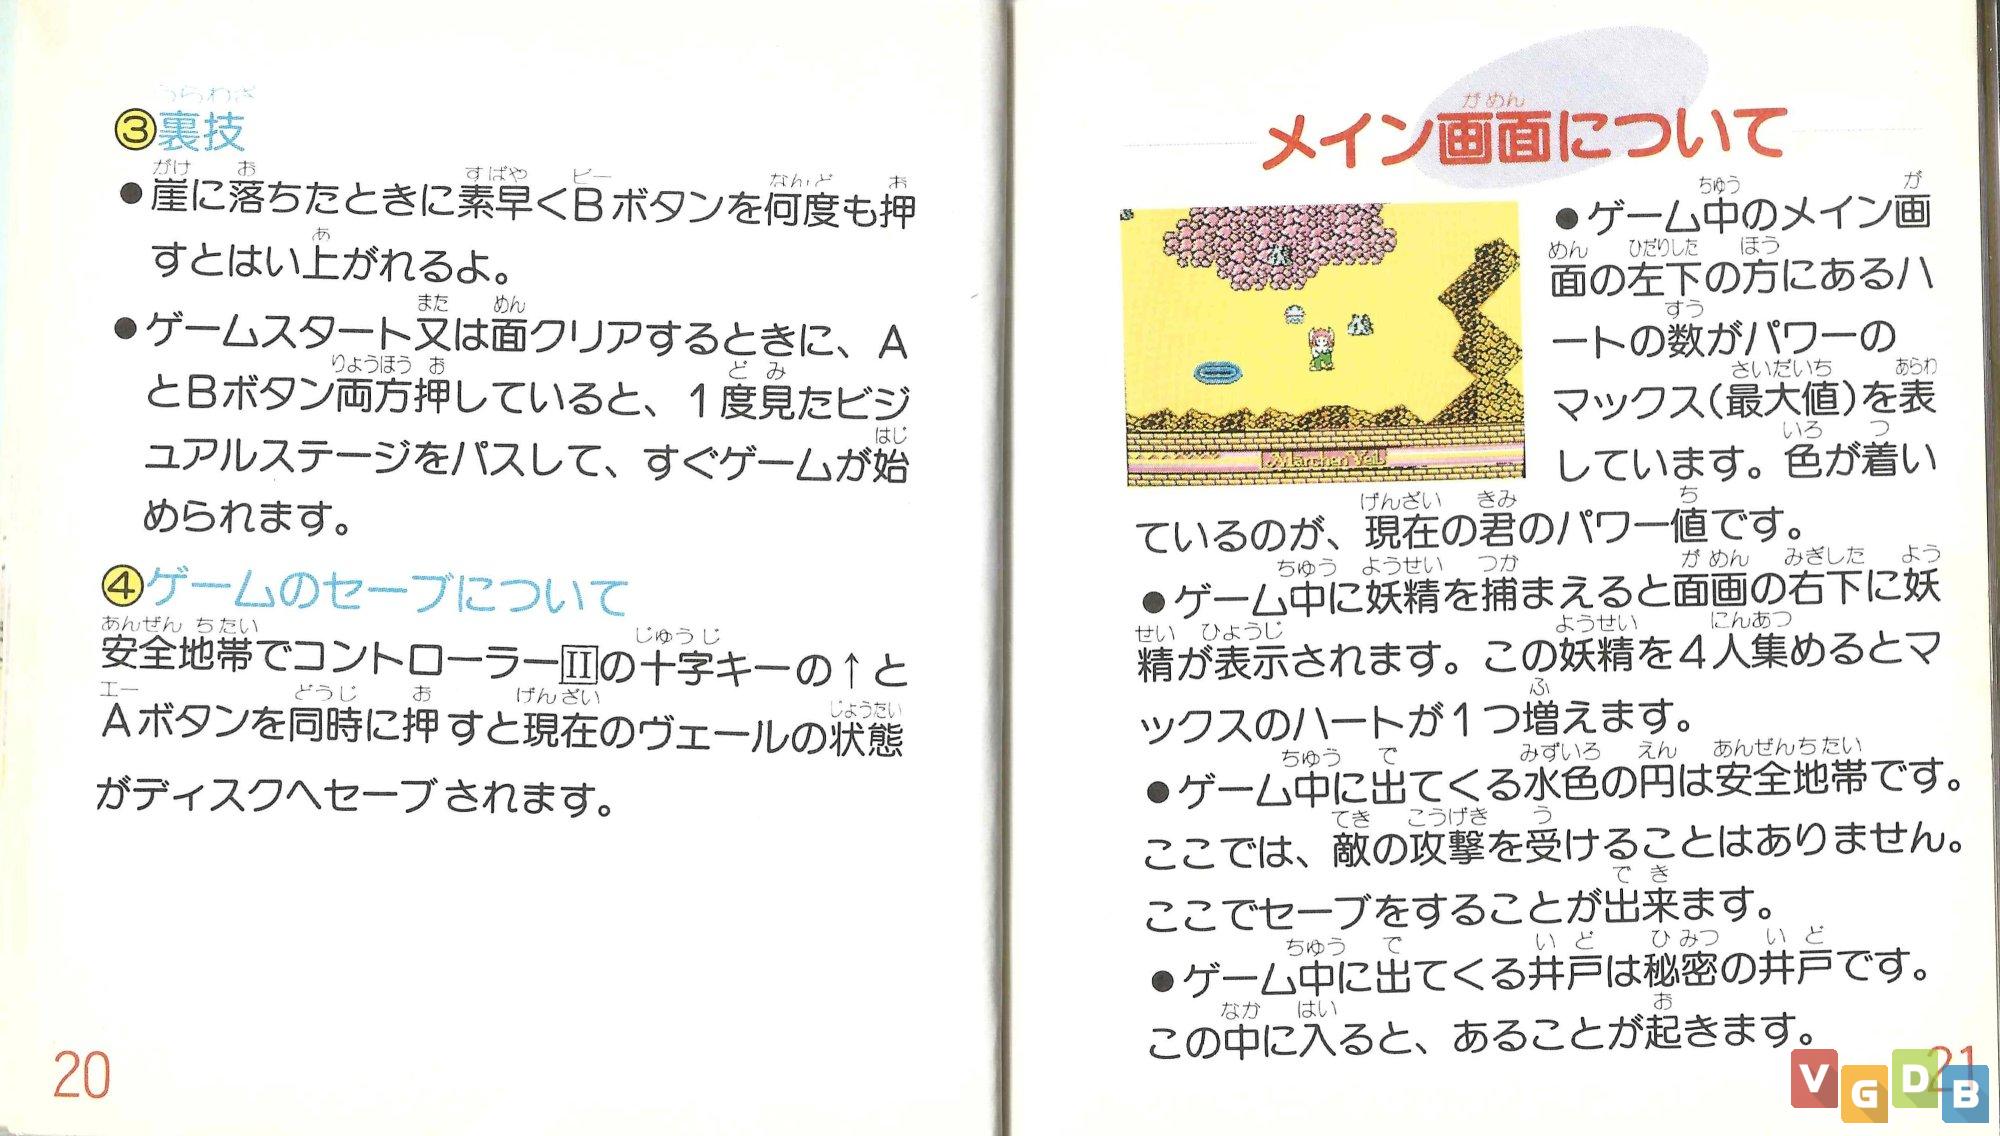 ③裏技
●崖に落ちたときに素早くBボタンを何度も押
すとはい上がれるよ。
●ゲームスタート又は面クリアするときに、A
とBボタン両方押していると、1度見たビジ
ュアルステージをパスして、すぐゲームが始
められます。
④ゲームのセーブについて
安全地帯でコントローラーⅡの十字キーの↑と
Aボタンを同時に押すと現在のヴェールの状態
がディスクへセーブされます。
20
メイン画面について
●ゲーム中のメイン画
面の左下の方にあるハ
ートの数がパワーの
マックス(最大値)を表
しています。色が着い
ているのが、現在の君のパワー値です。
●ゲーム中に妖精を捕まえると面画の右下に妖
精が表示されます。この妖精を4人集めるとマ
ックスのハートが1つ増えます。
●ゲーム中に出てくる水色の円は安全地帯です。
ここでは、敵の攻撃を受けることはありません。
ここでセーブをすることが出来ます。
●ゲーム中に出てくる井戸は秘密の井戸です。
この中に入ると、あることが起きます。
21
Marchen Veil
VGDB